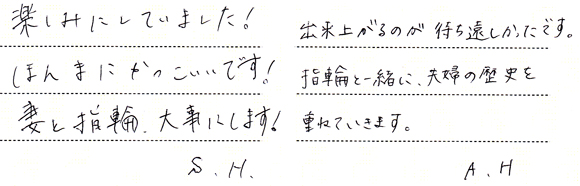 楽しみにしていました!
ほんまにかっこいいです!
妻と指輪、大事にします!
S.H.
出来上がるのが待ち遠しかったです。
指輪と一緒に、夫婦の歴史を
重ねていきます。
A.H